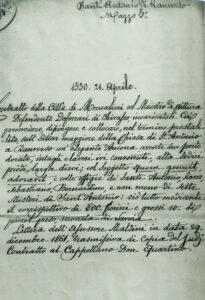 Sant'Antonio di Ranverso
Mazzo 3º
1530. 21. Aprile.
Contratto della Città di Moncalieri col Maestro di pittura
Defendente Deferrari di Chivasso, incaricato di
provvedere, dipingere e collocare, nel termine
sull'Altar maggiore della Chiesa di St. Antonio
di Ranverso un'elegante Ancona avente due porte
dorate, intagli e lavori ivi consenuti, alta tredici
piedi, larga dieci, col soggetto quem genuit
adoravit e colle effigie di Santi Antonio, Rocco,
Sebastiano, Bernardino, e non meno di sette
Misteri di Sant'Antonio; ciò tutto mediante
il corrispettivo di 800. fiorini e grossi
poco peso, moneta di Savoia.
Lettera dell'Assessore Mattini in data 29
dicembre 1861, trasmissiva di Copia del
Contratto al Cappellano Don Quartino.